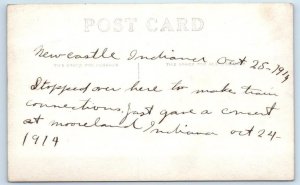 POST CARD
Newcastle Indiana Oct 25-1919
Stopped over here to make train
connections, Just gave a concert
at mooreland Indiana oct 24-
1919